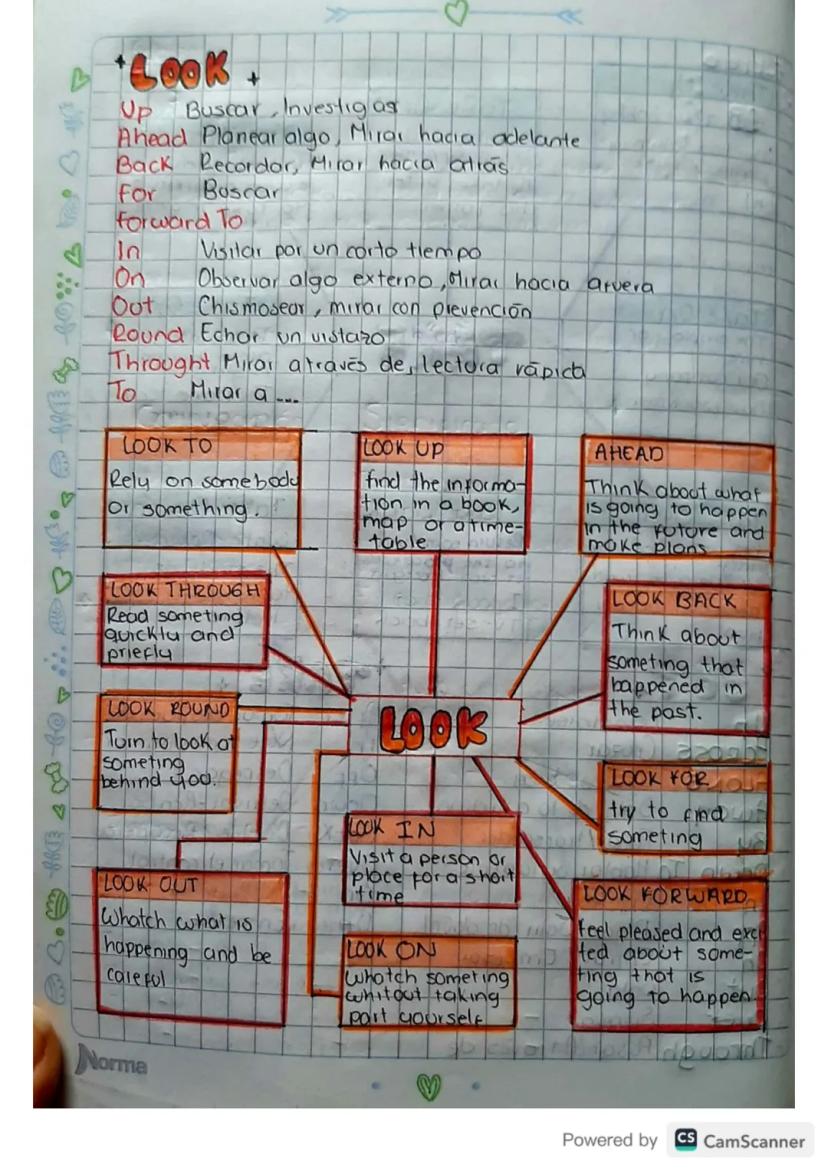 LOOK
Up Buscar, Investigar
Ahead Planear algo, Mirar hacia adelante
Back Recordar, Mirar hacia atrás
For Buscar
Forward To
In Visitar por un corto tiempo
On Observar algo externo, Mirar hacia afuera
Out Chismosear, mirar con prevención
Round Echar un vistazo
Throught Mirar através de, lectura rápida
To Mirar a ...
LOOK TO
Rely on somebody
or something.
LOOK UP
find the informa-
tion in a book,
map or a time-
table
AHEAD
Think about what
is going to happen
in the future and
make plans
LOOK THROUGH
Read someting
quickly and
priefly
LOOK BACK
Think about
someting that
happened in
the past.
LOOK ROUND
Turn to look at
someting
behind you.
LOOK
LOOK FOR
try to find
someting
LOOK IN
Visit a person or
place for a short
time
LOOK OUT
Whatch what is
happening and be
careful
LOOK FORWARD
feel pleased and exci
ted about some-
ting that is
going to happen
LOOK ON
Whatch someting
whitout taking
part yourself
Norma
Powered by CS CamScanner